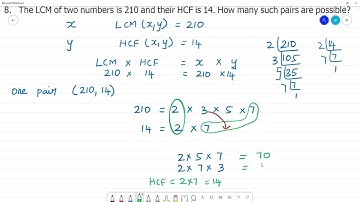 8. The LCM of two numbers is 210 and their HCF is 14. How many such pairs are possible?
x LCM (x,y) = 210
y HCF (x,y) = 14
LCM × HCF = x × y
210 × 14 = 210 × 14
2 210
3 105
5 35
7 7
1
2 14
7 7
1
one pair (210, 14)
210 = 2 × 3 × 5 × 7
14 = 2 × 7
2×5×7 = 70
2×7×3 =
HCF = 2×7 = 14